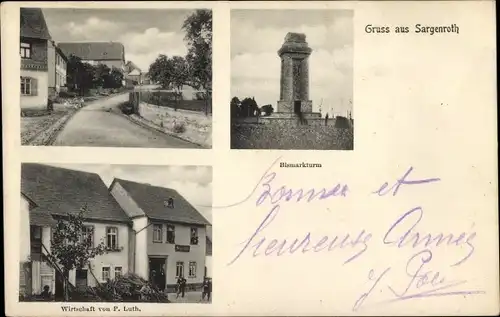 Gruss aus Sargenroth
Bismarkturm
Bonne et
heureuse Année
J.
Wirtschaft von P. Luth.